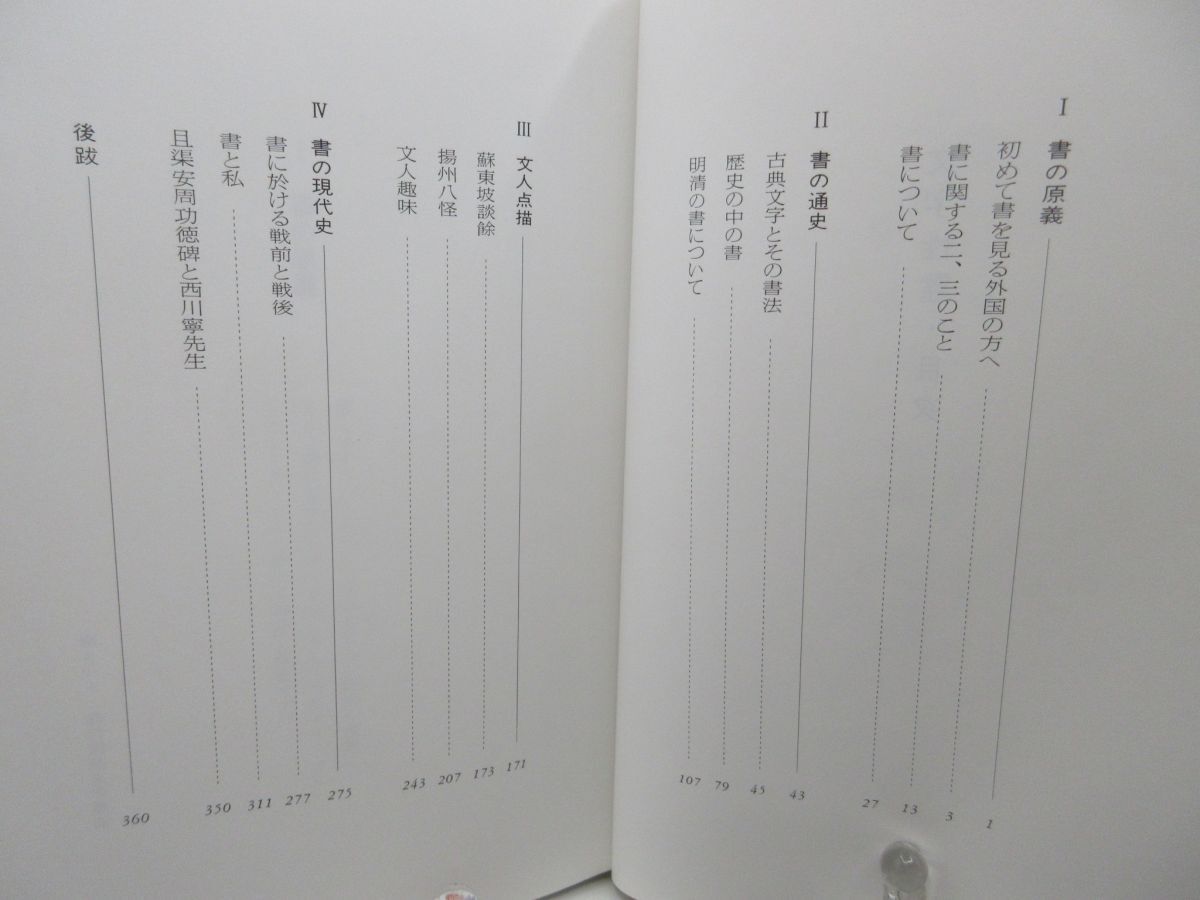 I 書の原義 1
初めて書を見る外国の方へ 3
書に関する二、三のこと 13
書について 27
II 書の通史 43
古典文字とその書法 45
歴史の中の書 79
明清の書について 107
III 文人点描 171
蘇東坡談餘 173
揚州八怪 207
文人趣味 243
IV 書の現代史 275
書に於ける戦前と戦後 277
書と私 311
且渠安周功徳碑と西川寧先生 350
後跋 360